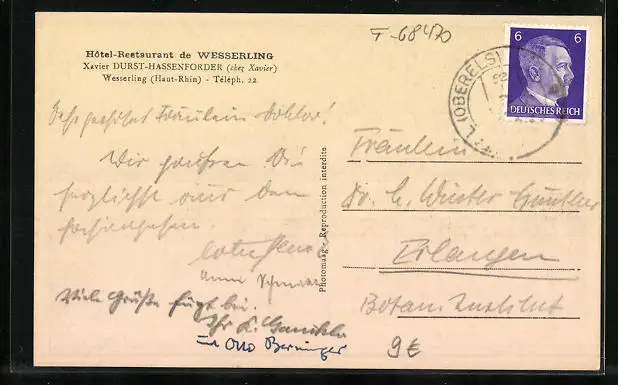 F-68470
Hôtel-Restaurant de WESSERLING
Xavier DURST-HASSENFORDER (chez Xavier)
Wesserling (Haut-Rhin) - Téléph. 22
6 6
DEUTSCHES REICH
(OBERELS)
Sehr geehrtes Fräulein Doktor!
Wir grüssen Sie
herzlichst aus dem
Viele Grüße fügt bei.
Ihr
und Otto Berninger
Photomaag - Reproduction interdite
Fräulein
Dr. Winter-Günther
Erlangen
Botan. Institut
9€